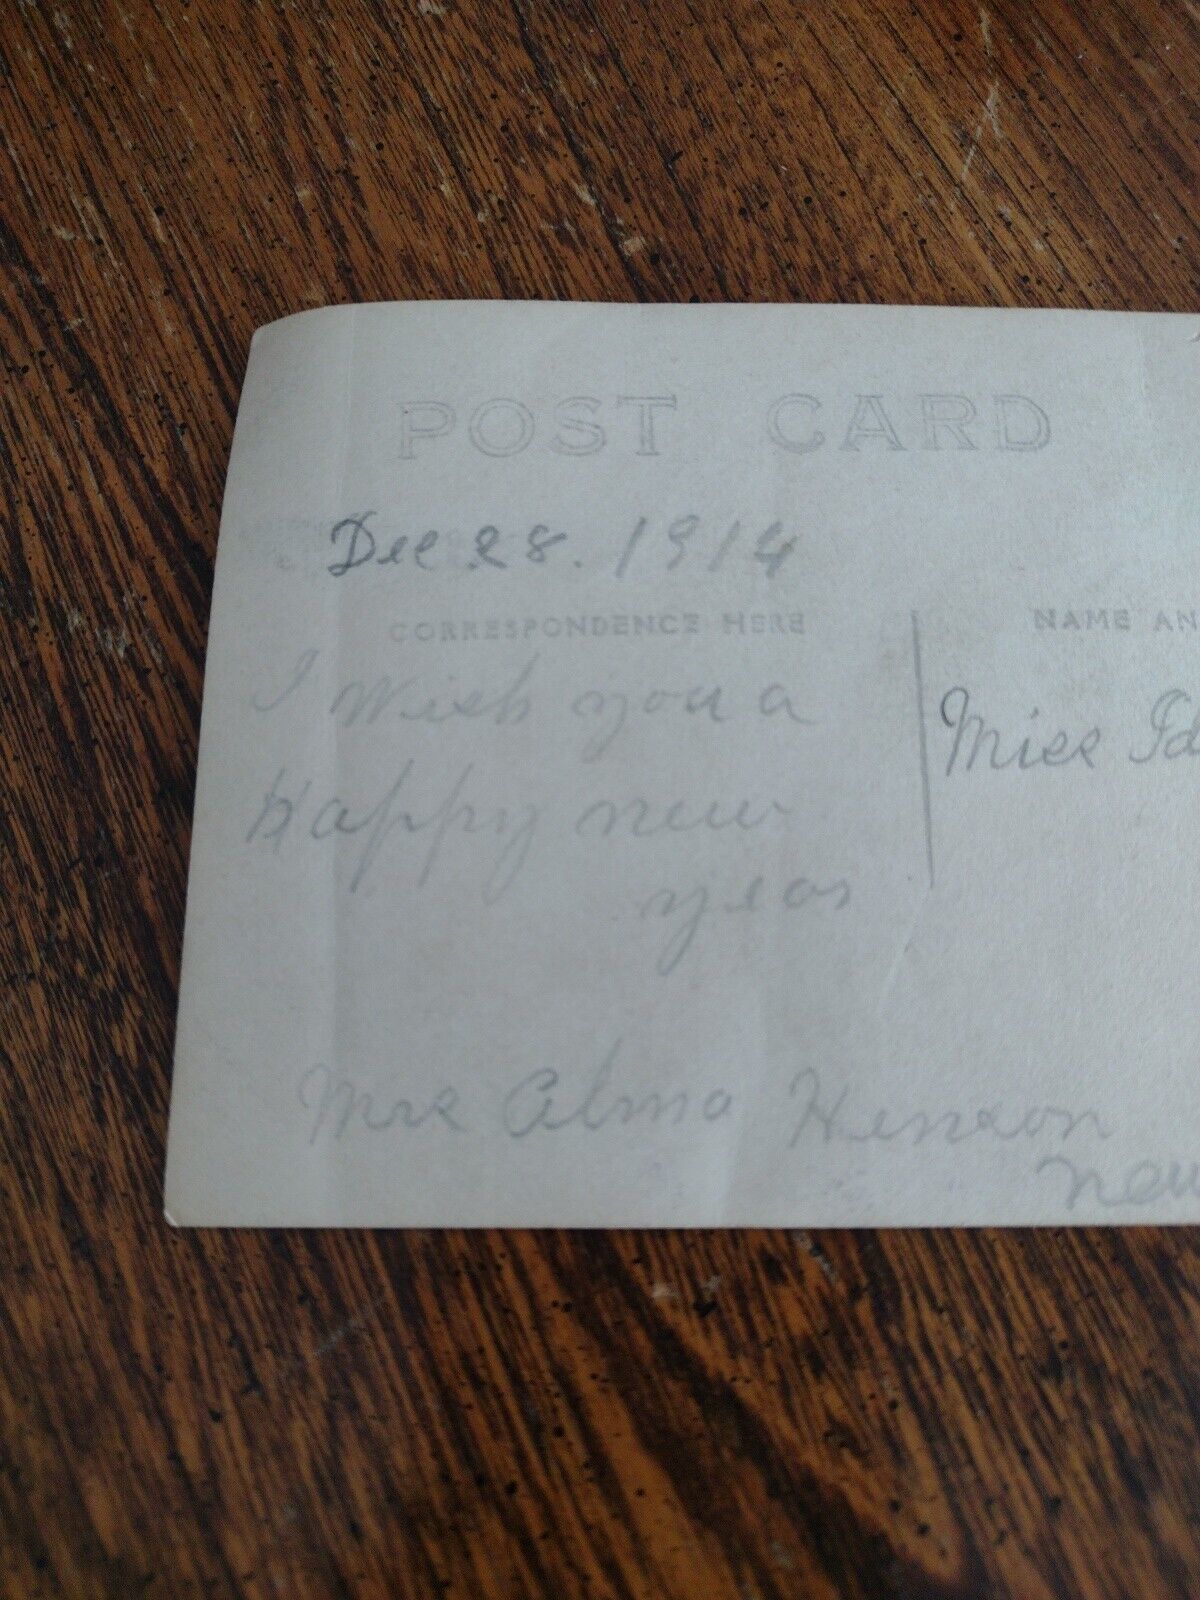 POST CARD
Dec 28. 1914
CORRESPONDENCE HERE
NAME AN
I Wish you a
Happy new
year
Miss Id
Mrs Alma Henson
new